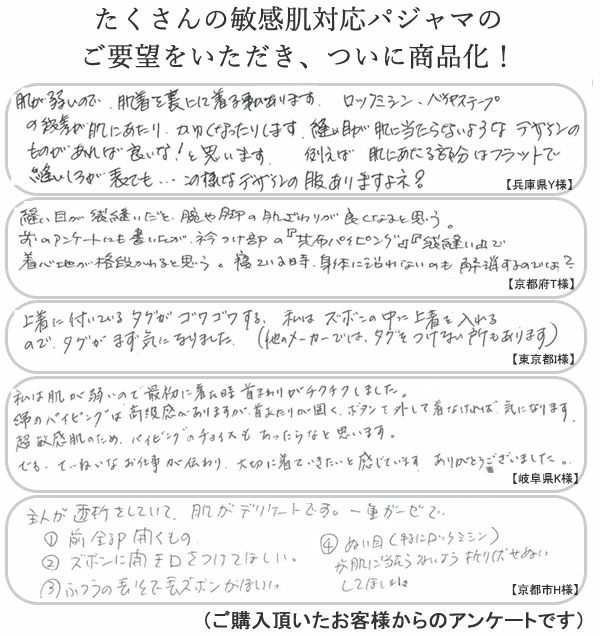 たくさんの敏感肌対応パジャマの
ご要望をいただき、ついに商品化！
肌が弱いので、肌着を裏にして着る事があります。 ロックミシン、バイヤステープ
の段差が肌にあたり、かゆくなったりします。縫い目が肌に当たらないような デザインの
ものがあれば良いな！と思います。 例えば 肌にあたる部分はフラットで
縫いしろが表でも… この様なデザインの服ありますよネ？
【兵庫県Y様】
縫い目が袋縫いだと、腕や脚の肌ざわりが良くなると思う。
前のアンケートにも書いたが、衿つけ部の『共布パイピング』『袋縫い』で
着心地が格段かわると思う。寝ている時、身体に沿わないのも 解消するのでは？
【京都府T様】
上着に付いているタグがゴワゴワする。 私は ズボンの中に上着を入れる
ので、タグがまず気になりました。（他のメーカーでは、タグをつけない所もあります）
【東京都I様】
私は肌が弱いので最初に着た時 首まわりがチクチクしました。
綿のパイピングは高級感がありますが、首あたりが固く、ボタンを外して着なければ、気になります。
超敏感肌のため、パイピングのチョイスもあったらなと思います。
でも、ていねいなお仕事が伝わり、大切に着ていきたいと感じています。 ありがとうございました。
【岐阜県K様】
主人が透析をしていて、肌がデリケートです。一重ガーゼで、
① 前全部開くもの
② ズボンに開き口をつけてほしい。
③ ふつうの長そで長ズボンがほしい。
④ ぬい目（特にロックミシン）
が肌に当たらないよう 折り伏せぬい
してほしい。
【京都市H様】
（ご購入頂いたお客様からのアンケートです）